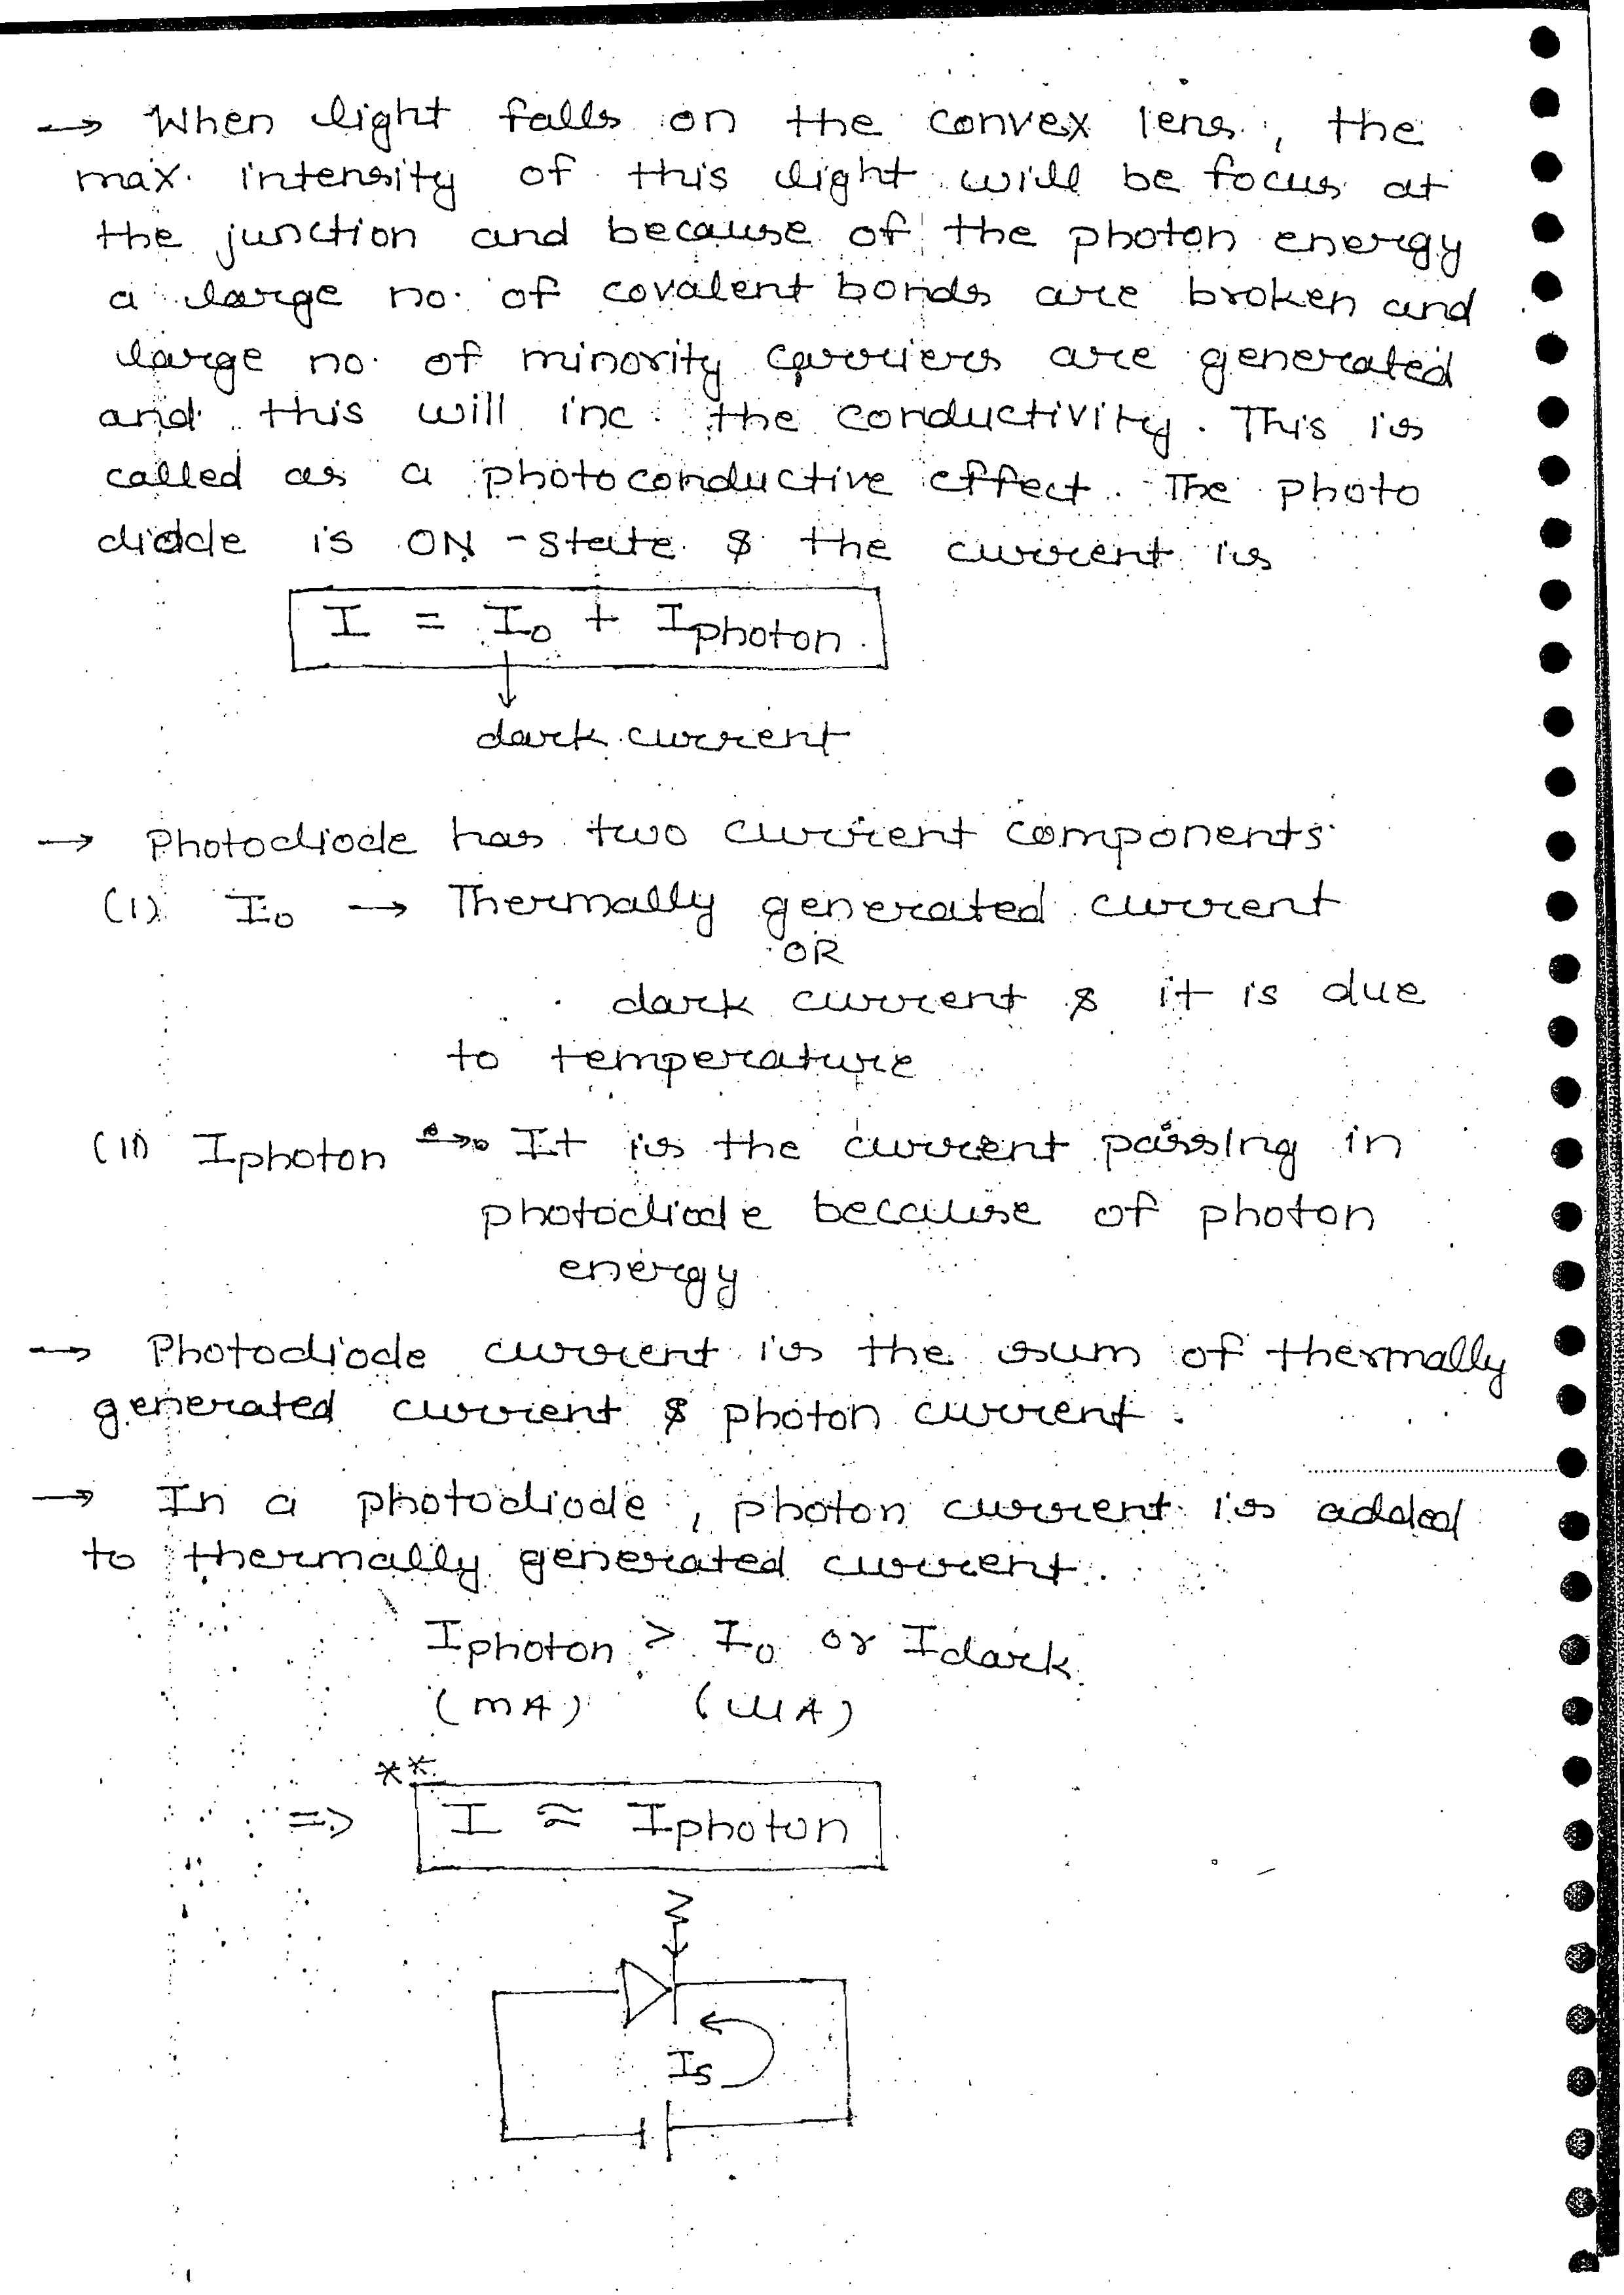 → When light falls on the convex lens, the
max. intensity of this light will be focus at
the junction and because of the photon energy
a large no. of covalent bonds are broken and
large no. of minority carriers are generated
and this will inc. the conductivity. This is
called as a photoconductive effect. The photo
diode is ON-state & the current is
I = I₀ + Iphoton.
dark current
→ Photodiode has two current components
(I) I₀ → Thermally generated current
OR
dark current & it is due
to temperature
(II) Iphoton → It is the current passing in
photodiode because of photon
energy
→ Photodiode current is the sum of thermally
generated current & photon current.
→ In a photodiode, photon current is added
to thermally generated current.
Iphoton > I₀ or Idark
(mA) (μA)
**
⇒ I ≈ Iphoton
Is